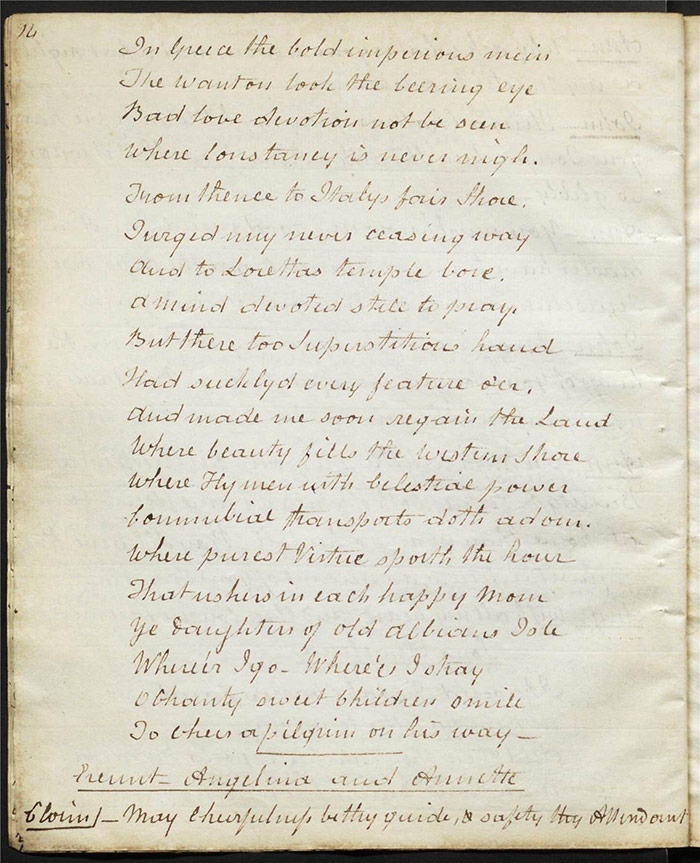 14
In Greece the bold imperious mein
The wanton look the leering eye
Bad love devotion not be seen
Where Constancy is never nigh.
From thence to Italys fair Shore,
I urged my never ceasing way
And to Lorettas temple bore,
a mind devoted still to pray.
But there too Superstitions hand
Had sicklyd every feature o'er,
And made me soon regain the Land
Where beauty fills the western Shore
Where Hymen with Celestial power
Connubial transports doth adorn.
Where purest Virtue sports the hour
That ushers in each happy Morn
Ye daughters of old Albians Isle
Where'er I go - Where'er I stray
O Charity sweet Children smile
To cheer a pilgrim on his way -
Exeunt - Angelina and Annette
Clown - May Chearfulness be thy guide, & safety thy Attendant